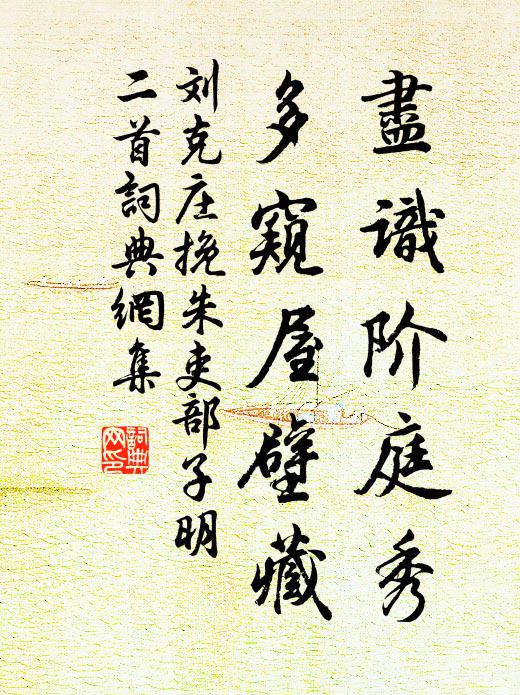 盡識阶庭秀
多窺屋壁藏
刘克庄挽朱吏部子明
二首詞典網集
詞典
网印